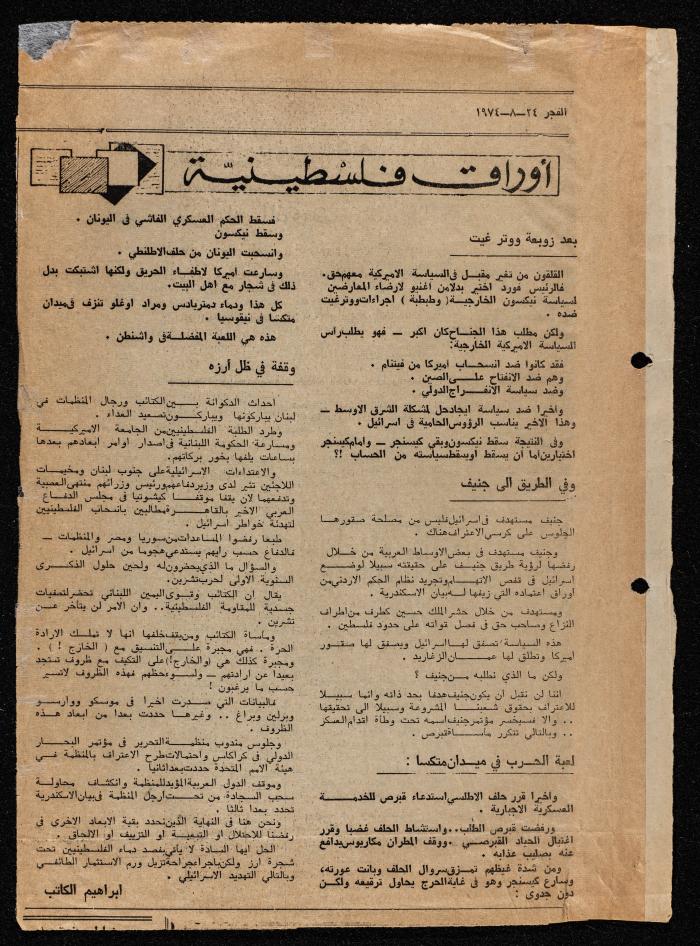 الفجر ٢٤-٨-١٩٧٤
أوراق فلسطينية
بعد زوبعة ووتر غيت
القلقون من تغير مقبل في السياسة الاميركية معهم حق.
فالرئيس فورد اختير بدلا من أغنيو لارضاء المعارضين
لسياسة نيكسون الخارجية (وطبطبة) اجراءات ووترغيت
ضده .
ولكن مطلب هذا الجناح كان اكبر — فهو يطلب رأس
السياسة الاميركية الخارجية:
فقد كانوا ضد انسحاب اميركا من فيتنام .
وهم ضد الانفتاح على الصين .
وضد سياسة الانفراج الدولي .
واخيرا ضد سياسة ايجاد حل لمشكلة الشرق الاوسط —
وهذا الاخير يناسب الرؤوس الحامية في اسرائيل .
وفي النتيجة سقط نيكسون وبقي كيسنجر — وامام كيسنجر
اختيارين اما أن يسقط او يسقط سياسته من الحساب !؟
وفي الطريق الى جنيف
جنيف مستهدف في اسرائيل فليس من مصلحة صقورها
الجلوس على كرسي الاعتراف هناك .
وجنيف مستهدف في بعض الاوساط العربية من خلال
رفضها لرؤية طريق جنيف على حقيقته سبيلا لوضع
اسرائيل في قفص الاتهام وتجريد نظام الحكم الاردني من
اوراق اعتماده التي زيفها له بيان الاسكندرية .
ومستهدف من خلال حشر الملك حسين كطرف من اطراف
النزاع وصاحب حق في فصل قواته على حدود فلسطين .
هذه السياسة تصفق لها اسرائيل ويصفق لها صقور
اميركا وتطلق لها عمان الزغاريد .
ولكن ما الذي نطلبه من جنيف ؟
اننا لن نقبل أن يكون جنيف هدفا بحد ذاته وانما سبيلا
للاعتراف بحقوق شعبنا المشروعة وسبيلا الى تحقيقها
.. والا فسيخسر مؤتمر جنيف اسمه تحت وطأة اقدام العسكر
.. وبالتالي تتكرر مأساة قبرص .
لعبة الحرب في ميدان متكسا :
واخيرا قرر حلف الاطلسي استدعاء قبرص للخدمة
العسكرية الاجبارية .
ورفضت قبرص الطلب.. واستشاط الحلف غضبا وقرر
اغتيال الحياد القبرصي . ووقف المطران مكاريوس يدافع
عنه بصليب عذابه .
ومن شدة غيظهم تمزق سروال الحلف وبانت عورته،
وسارع كيسنجر وهو في غاية الحرج يحاول ترقيعه ولكن
دون جدوى :
فسقط الحكم العسكري الفاشي في اليونان .
وسقط نيكسون
وانسحبت اليونان من حلف الاطلنطي .
وسارعت أميركا لاطفاء الحريق ولكنها اشتبكت بدل
ذلك في شجار مع اهل البيت.
كل هذا ودماء دمتريادس ومراد اوغلو تنزف في ميدان
متكسا في نيقوسيا .
هذه هي اللعبة المفضلة في واشنطن .
وقفة في ظل أرزه
احداث الدكوانة بين الكتائب ورجال المنظمات في
لبنان يباركونها ويباركون تصعيد العداء .
وطرد الطلبة الفلسطينيين من الجامعة الاميركية
ومسارعة الحكومة اللبنانية في اصدار اوامر ابعادهم بعدها
بساعات يلفها بخور بركاتهم.
والاعتداءات الاسرائيلية على جنوب لبنان ومخيمات
اللاجئين تثير لدى وزير دفاعهم ورئيس وزرائهم منتهى العصبية
وتدفعهما لان يقفا موقفا كيشونيا في مجلس الدفاع
العربي الاخير بالقاهرة مطالبين بانسحاب الفلسطينيين
لتهدئة خواطر اسرائيل .
طبعا رفضوا المساعدات من سوريا ومصر والمنظمات —
فالدفاع حسب رأيهم يستدعي هجوما من اسرائيل .
والسؤال ما الذي يحضرون له ولحين حلول الذكرى
السنوية الاولى لحرب تشرين.
يقال ان الكتائب وقوى اليمين اللبناني تحضر لتصفيات
جسدية للمقاومة الفلسطينية.. وان الامر لن يتأخر عن
تشرين .
ومأساة الكتائب ومن يقف خلفها انها لا تملك الارادة
الحرة . فهي مجبرة على التنسيق مع ( الخارج ! ) .
ومجبرة كذلك هي (والخارج!) على التكيف مع ظروف تستجد
بعيدا عن ارادتهم — ولسوء حظهم فهذه الظروف لاتسير
حسب ما يرغبون !
فالبيانات التي صدرت اخيرا في موسكو ووارسو
وبرلين وبراغ .. وغيرها حددت بعدا من أبعاد هذه
الظروف .
وجلوس مندوب منظمة التحرير في مؤتمر البحار
الدولي في كراكاس واحتمالات طرح الاعتراف بالمنظمة في
هيئة الامم المتحدة حددت بعدا ثانيا .
وموقف الدول العربية المؤيد للمنظمة وانكشاف محاولة
سحب السجادة من تحت ارجل المنظمة في بيان الاسكندرية
تحدد بعدا ثالثا .
ونحن هنا في النهاية الذين نحدد بقية الابعاد الاخرى في
رفضنا للاحتلال او التبعية او التزييف او الالحاق .
الحل ايها السادة لا يأتي بفصد دماء الفلسطينيين تحت
شجرة ارز ولكن باجراء جراحة تزيل ورم الاستثمار الطائفي
وبالتالي التهديد الاسرائيلي .
ابراهيم الكاتب